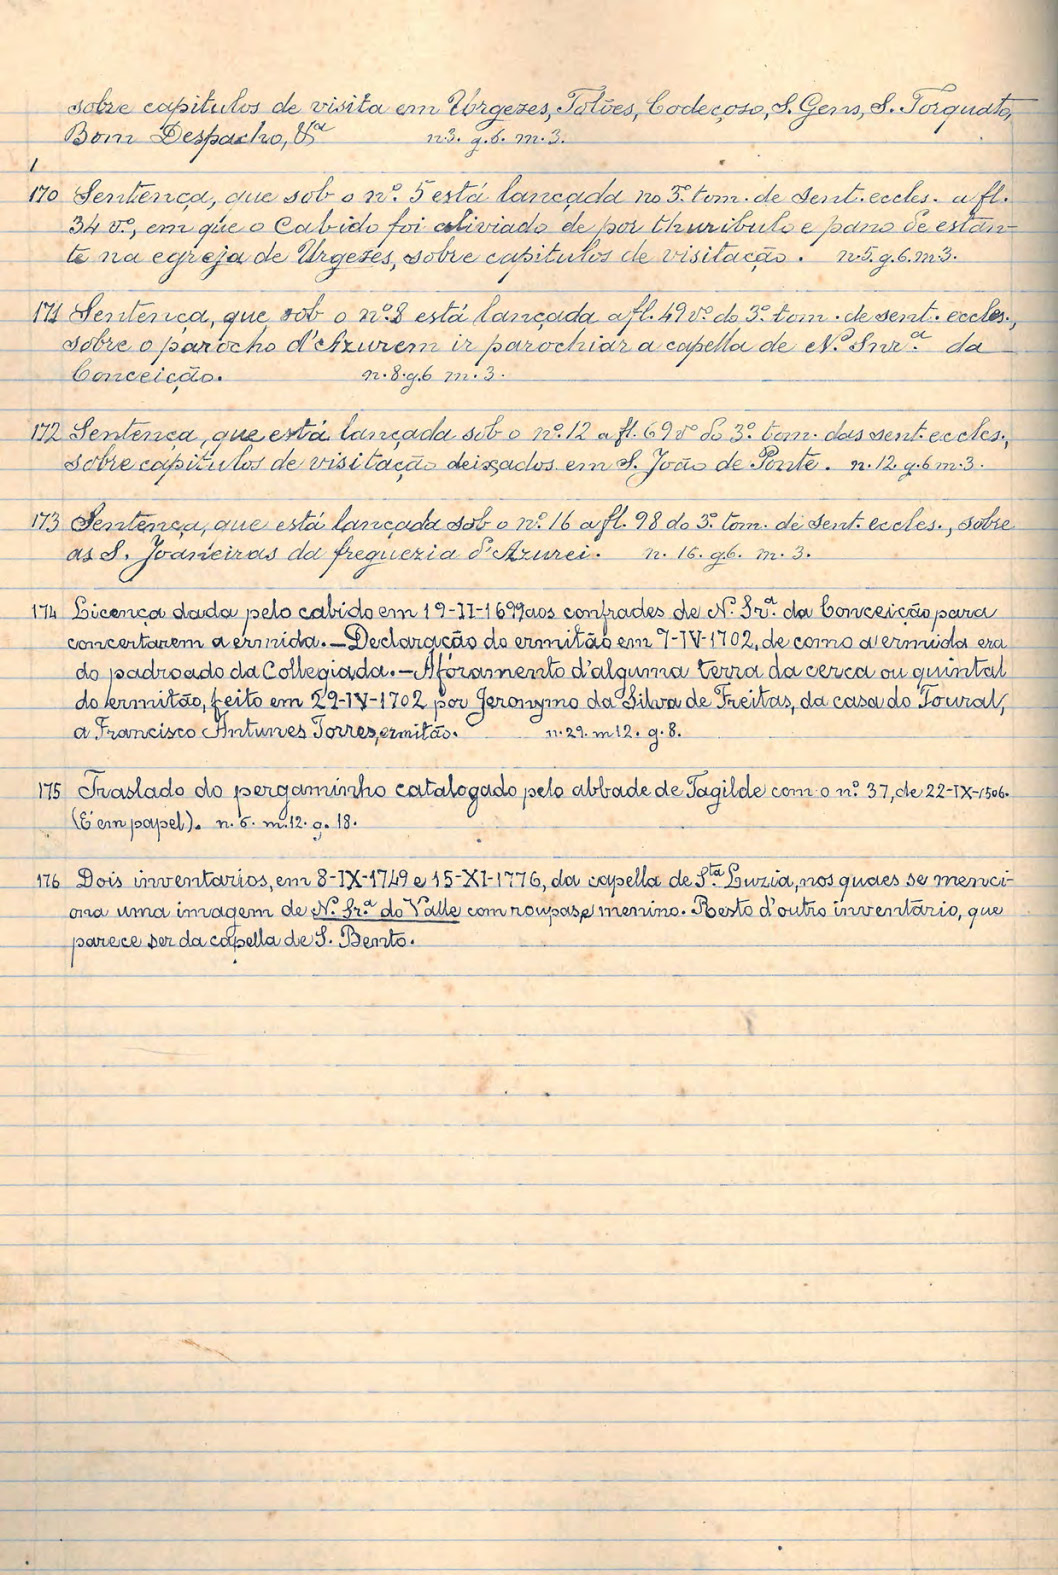 sobre capitulos de visita em Urgezes, Tolões, Codeçoso, S. Gens, S. Torquato,
Bom Despacho, &ª n.3. g.6. m.3.
170 Sentença, que sob o nº. 5 está lançada no 3º. tom. de sent. eccles. a fl.
34 vº, em que o Cabido foi aliviado de por thuribulo e pano de estan-
te na egreja de Urgezes, sobre capitulos de visitação. n.5. g.6. m.3.
171 Sentença, que sob o nº. 8 está lançada a fl. 49 vº. do 3º. tom. de sent. eccles.,
sobre o parocho d'Azurem ir parochiar a capella de N. Snrª. da
Conceição. n.8. g.6 m.3.
172 Sentença, que está lançada sob o nº. 12 a fl. 69 vº do 3º. tom. das sent. eccles.,
sobre capitulos de visitação deixados em S. João de Ponte. n.12. g.6 m.3.
173 Sentença, que está lançada sob o nº. 16 a fl. 98 do 3º. tom. de sent. eccles., sobre
as S. Joaneiras da freguezia d'Azurei. n. 16. g.6. m. 3.
174 Licença dada pelo cabido em 19-II-1699 aos confrades de N. Srª. da Conceição para
concertarem a ermida.—Declaração do ermitão em 7-IV-1702, de como a ermida era
do padroado da Collegiada.—Aforamento d'alguma terra da cerca ou quintal
do ermitão, feito em 29-IV-1702 por Jeronymo da Silva de Freitas, da casa do Toural,
a Francisco Antunes Torres, ermitão. n.29. m 12. g.8.
175 Traslado do pergaminho catalogado pelo abbade de Tagilde com o nº. 37, de 22-IX-1506.
(É em papel). n. 6. m.12. g. 18.
176 Dois inventarios, em 8-IX-1749 e 15-XI-1776, da capella de Stª Luzia, nos quaes se menci-
ona uma imagem de N. Srª. do Valle com roupas e menino. Resto d'outro inventário, que
parece ser da capella de S. Bento.